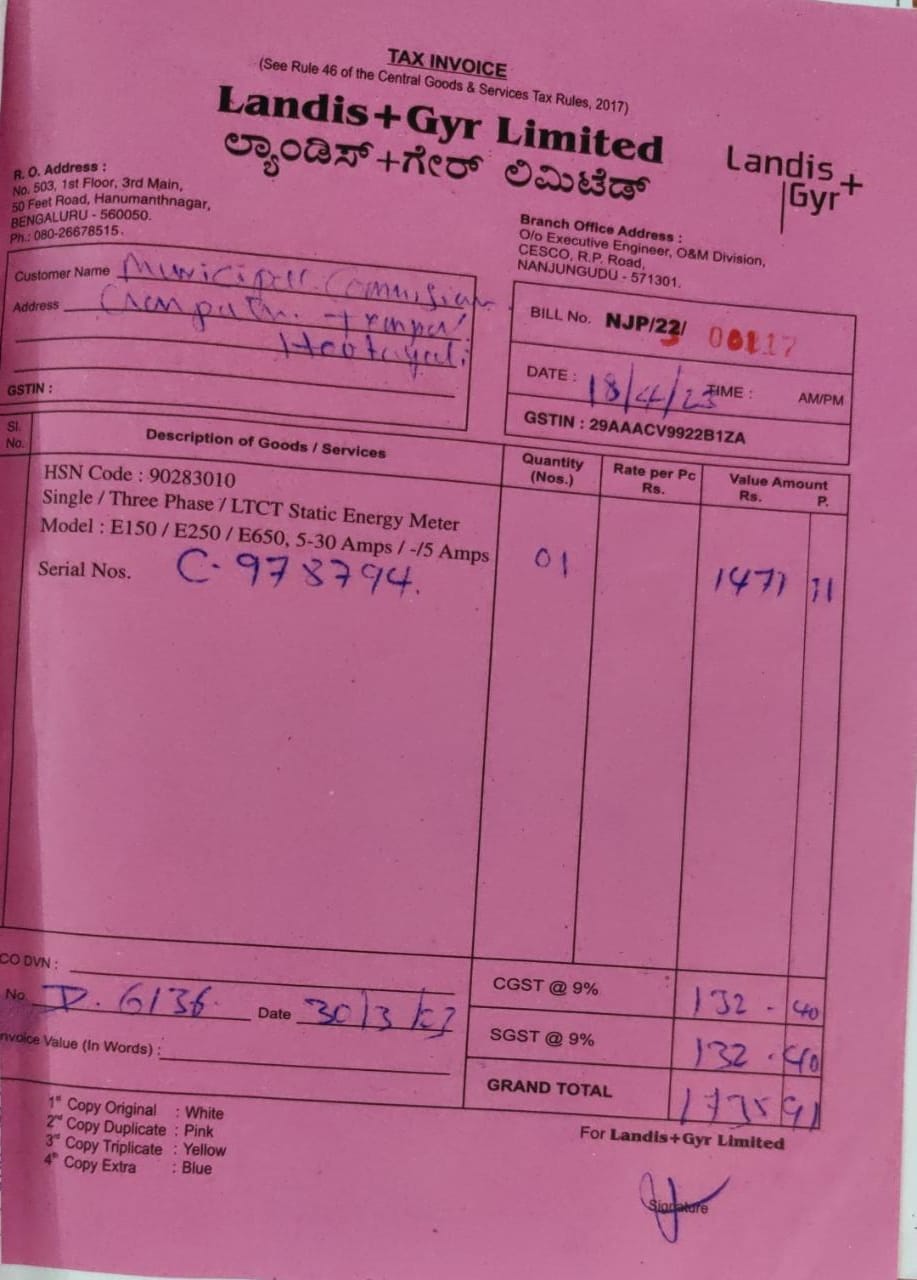 TAX INVOICE
(See Rule 46 of the Central Goods & Services Tax Rules, 2017)
Landis+Gyr Limited
ಲ್ಯಾಂಡಿಸ್+ಗೇರ್ ಲಿಮಿಟೆಡ್
Landis
Gyr+
R. O. Address :
No. 503, 1st Floor, 3rd Main,
50 Feet Road, Hanumanthnagar,
BENGALURU - 560050.
Ph.: 080-26678515.
Branch Office Address :
O/o Executive Engineer, O&M Division,
CESCO, R.P. Road,
NANJUNGUDU - 571301.
Customer Name Municipal Commissioner
Address
GSTIN :
BILL No. NJP/23/ 00117
DATE : 18/4/23 TIME : AM/PM
GSTIN : 29AAACV9922B1ZA
Sl. No. Description of Goods / Services Quantity (Nos.) Rate per Pc Rs. Value Amount Rs. P.
HSN Code : 90283010
Single / Three Phase / LTCT Static Energy Meter
Model : E150 / E250 / E650, 5-30 Amps / -/5 Amps
Serial Nos. C-978794. 01 1471 11
CO DVN :
No. D. 6136. Date 30/3/23
nvoice Value (In Words) :
CGST @ 9% 132 - 40
SGST @ 9% 132 . 40
GRAND TOTAL 1735 91
1st Copy Original : White
2nd Copy Duplicate : Pink
3rd Copy Triplicate : Yellow
4th Copy Extra : Blue
For Landis+Gyr Limited
Signature